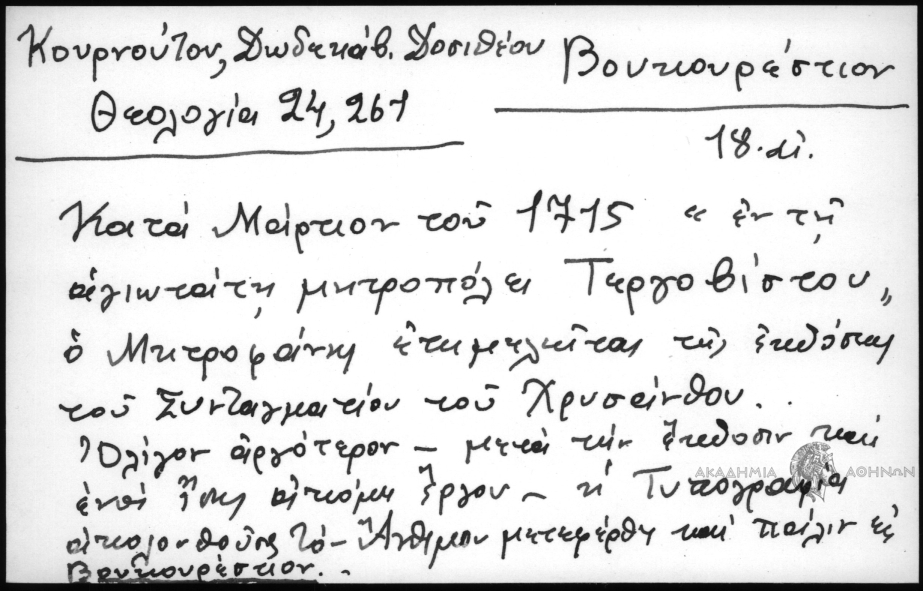 Κουρνούτου, Δωδεκάβ. Δοσιθέου
Θεολογία 24, 261
Βουκουρέστιον
18. αἰ.
Κατά Μάρτιον τοῦ 1715 « ἐν τῇ
ἁγιωτάτῃ μητροπόλει Τεργοβίστου„
ὁ Μητροφάνης ἐπιμελεῖται τῆς ἐκδόσεως
τοῦ Συνταγματίου τοῦ Χρυσάνθου.
Ὀλίγον ἀργότερον – μετά τήν ἔκδοσιν καί
ἑνός ἴσως ἀκόμη ἔργου – ἡ Τυπογραφία
ἀκολουθοῦσα τό– Ἄνθιμον μετεφέρθη καί πάλιν εἰς
Βουκουρέστιον.
ΑΚΑΔΗΜΙΑ ΑΘΗΝΩΝ